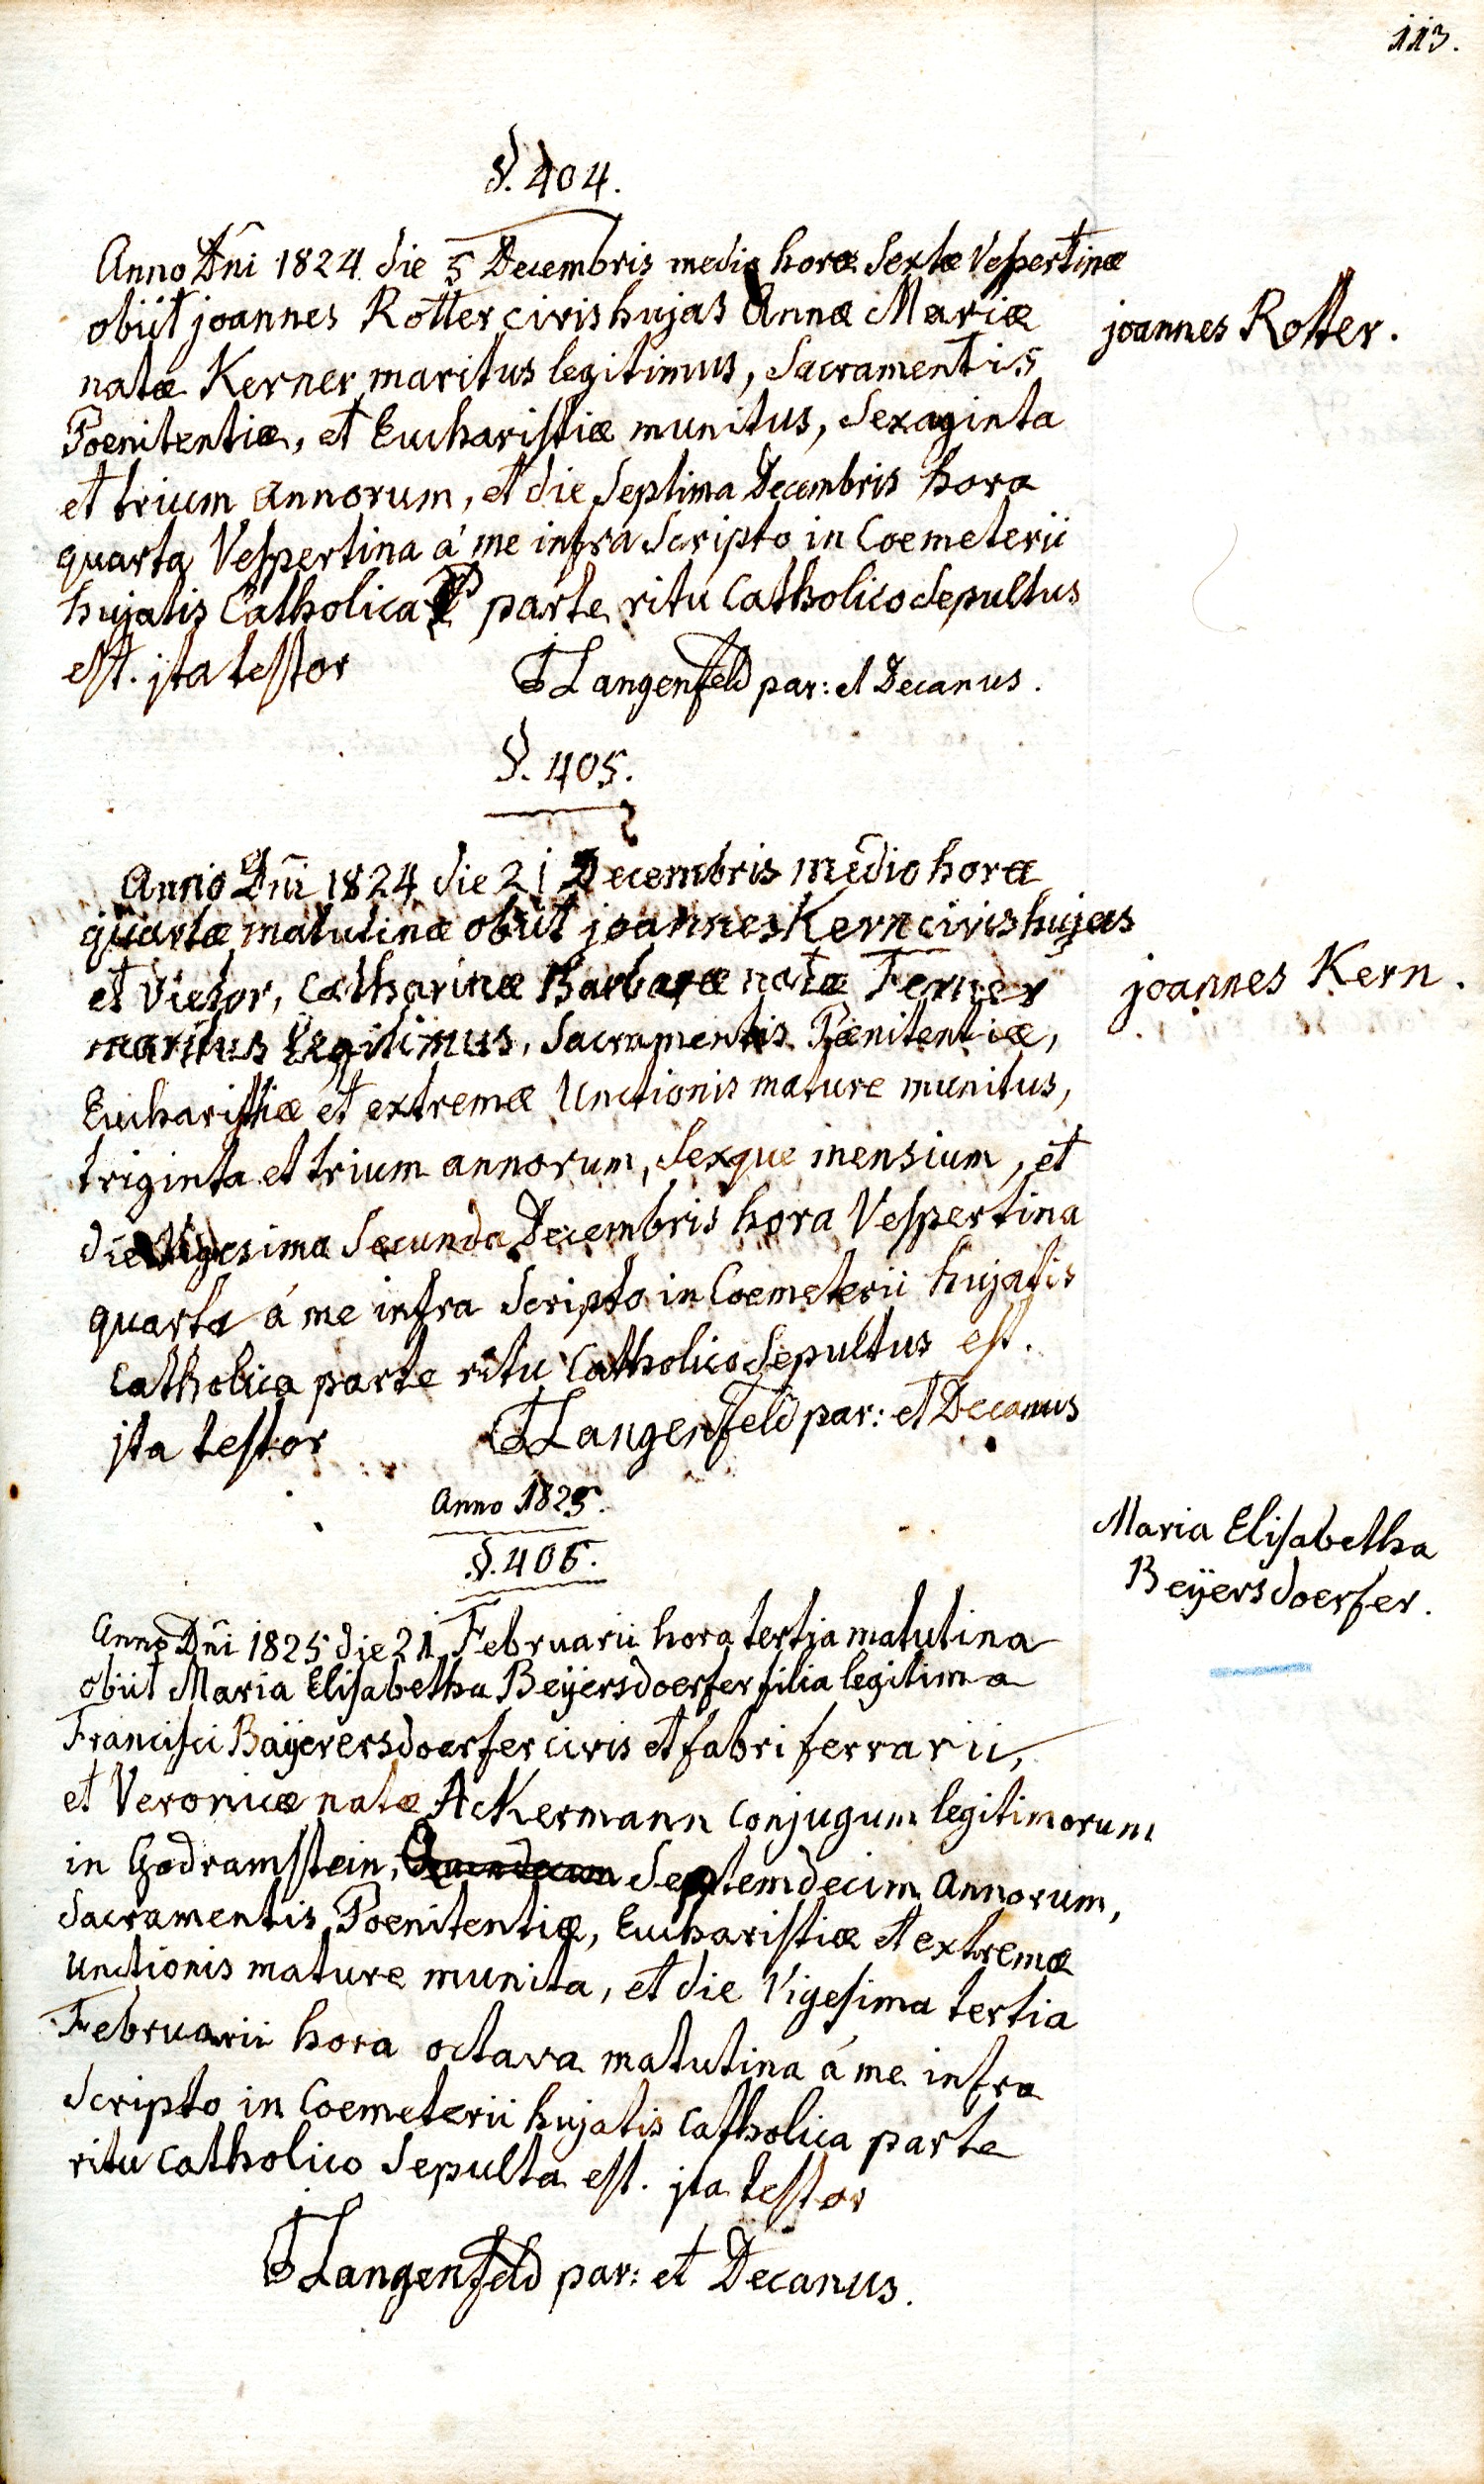 113.
§. 404.
Anno Dni 1824. die 5 Decembris media horæ Sextæ Vespertinæ
obiit joannes Rotter civis hujas Annæ Mariæ
joannes Rotter.
natæ Kerner maritus legitimus, Sacramentis
Poenitentiæ, et Eucharistiæ munitus, Sexaginta
et trium annorum, et die Septima Decembris hora
quarta Vespertina á me infra Scripto in Coemeterii
hujatis Catholica parte ritu Catholico Sepultus
est. jta testor
Langenfeld par: et Decanus.
§. 405.
Anno Dni 1824 die 21 Decembris medio horæ
quartæ matutinæ obiit joannes Kern civis hujas
et Vietor, Catharinæ Barbaræ natæ Ferner
joannes Kern.
maritus legitimus, Sacramentis Pœnitentiæ,
Eucharistiæ et extremæ Unctionis mature munitus,
triginta et trium annorum, Sexque mensium, et
die Vigesima Secunda Decembris hora Vespertina
quarta á me infra Scripto in Coemeterii hujatis
Catholica parte ritu Catholico Sepultus est.
jta testor
Langenfeld par: et Decanus
Anno 1825.
§. 406.
Maria Elisabetha
Beÿersdoerfer.
Anno Dni 1825 die 21 Februarii hora tertia matutina
obiit Maria Elisabetha Beÿersdoerfer filia legitima
Francisci Baÿerersdoerfer civis et fabri ferrarii,
et Veronicæ natæ Ackermann conjugum legitimorum
in Godramstein, Septemdecim annorum,
Sacramentis Poenitentiæ, Eucharistiæ et extremæ
unctionis mature munita, et die Vigesima tertia
Februarii hora octava matutina á me infra
Scripto in Coemeterii hujatis Catholica parte
ritu Catholico Sepulta est. jta testor
Langenfeld par: et Decanus.